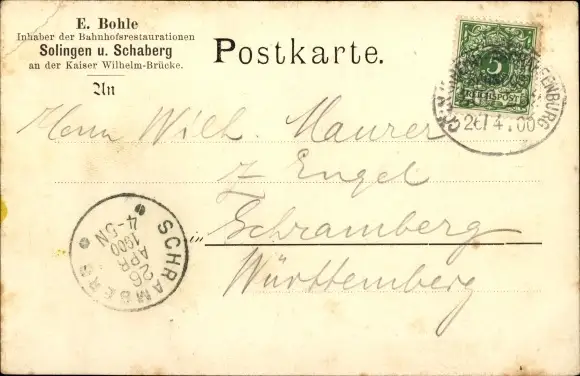 E. Bohle
Inhaber der Bahnhofsrestaurationen
Solingen u. Schaberg
an der Kaiser Wilhelm-Brücke.
Postkarte.
An
5
REICHSPOST
26/4.00
Herrn Wilh. Maurer
z Engel
in Schramberg
Württemberg
SCHRAMBERG
26
APR
1900
4-5N